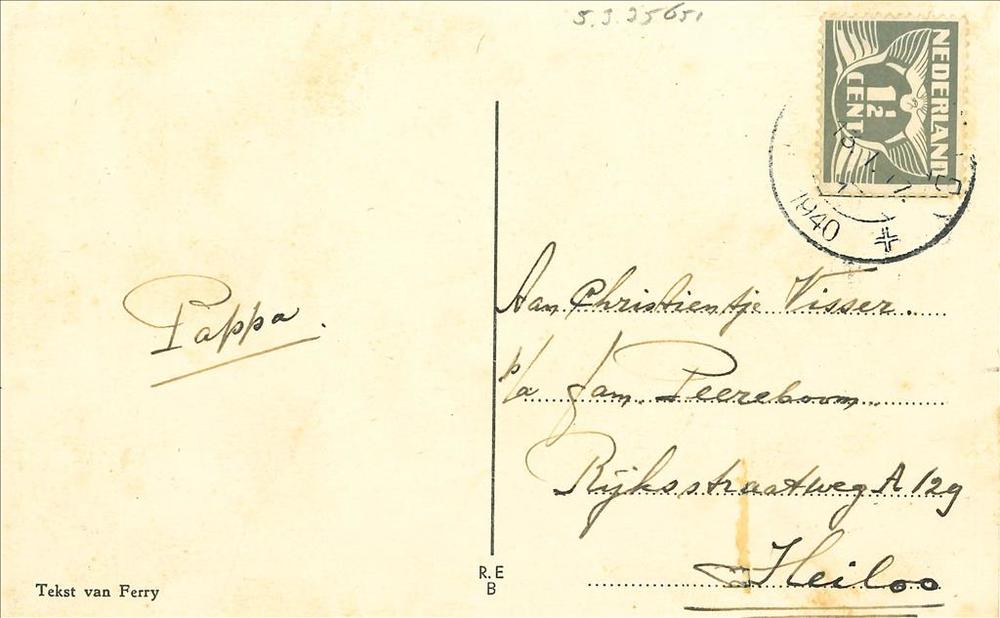 5.3.25651
NEDERLAND
1½
CENT
1940
Pappa.
Aan Christientje Visser.
p/a fam. Peereboom.
Rijksstraatweg A 129
Heiloo
Tekst van Ferry
R.E
B